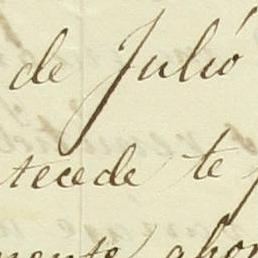 de Julió
tecede te
mente abon